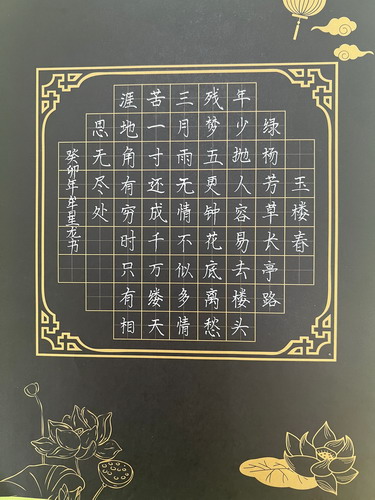 玉楼春
绿杨芳草长亭路
年少抛人容易去楼头
残梦五更钟花底离愁
三月雨无情不似多情
苦一寸还成千万缕天
涯地角有穷时只有相
思无尽处
癸卯年牟星龙书